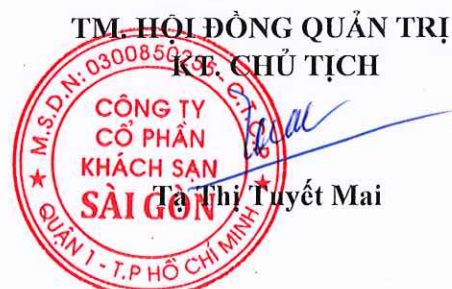 TM. HỘI ĐỒNG QUẢN TRỊ
KT. CHỦ TỊCH
M.S.D.N: 0300850256 - C.T.C.P
CÔNG TY
CỔ PHẦN
KHÁCH SẠN
SÀI GÒN
QUẬN 1 - T.P HỒ CHÍ MINH
Tạ Thị Tuyết Mai